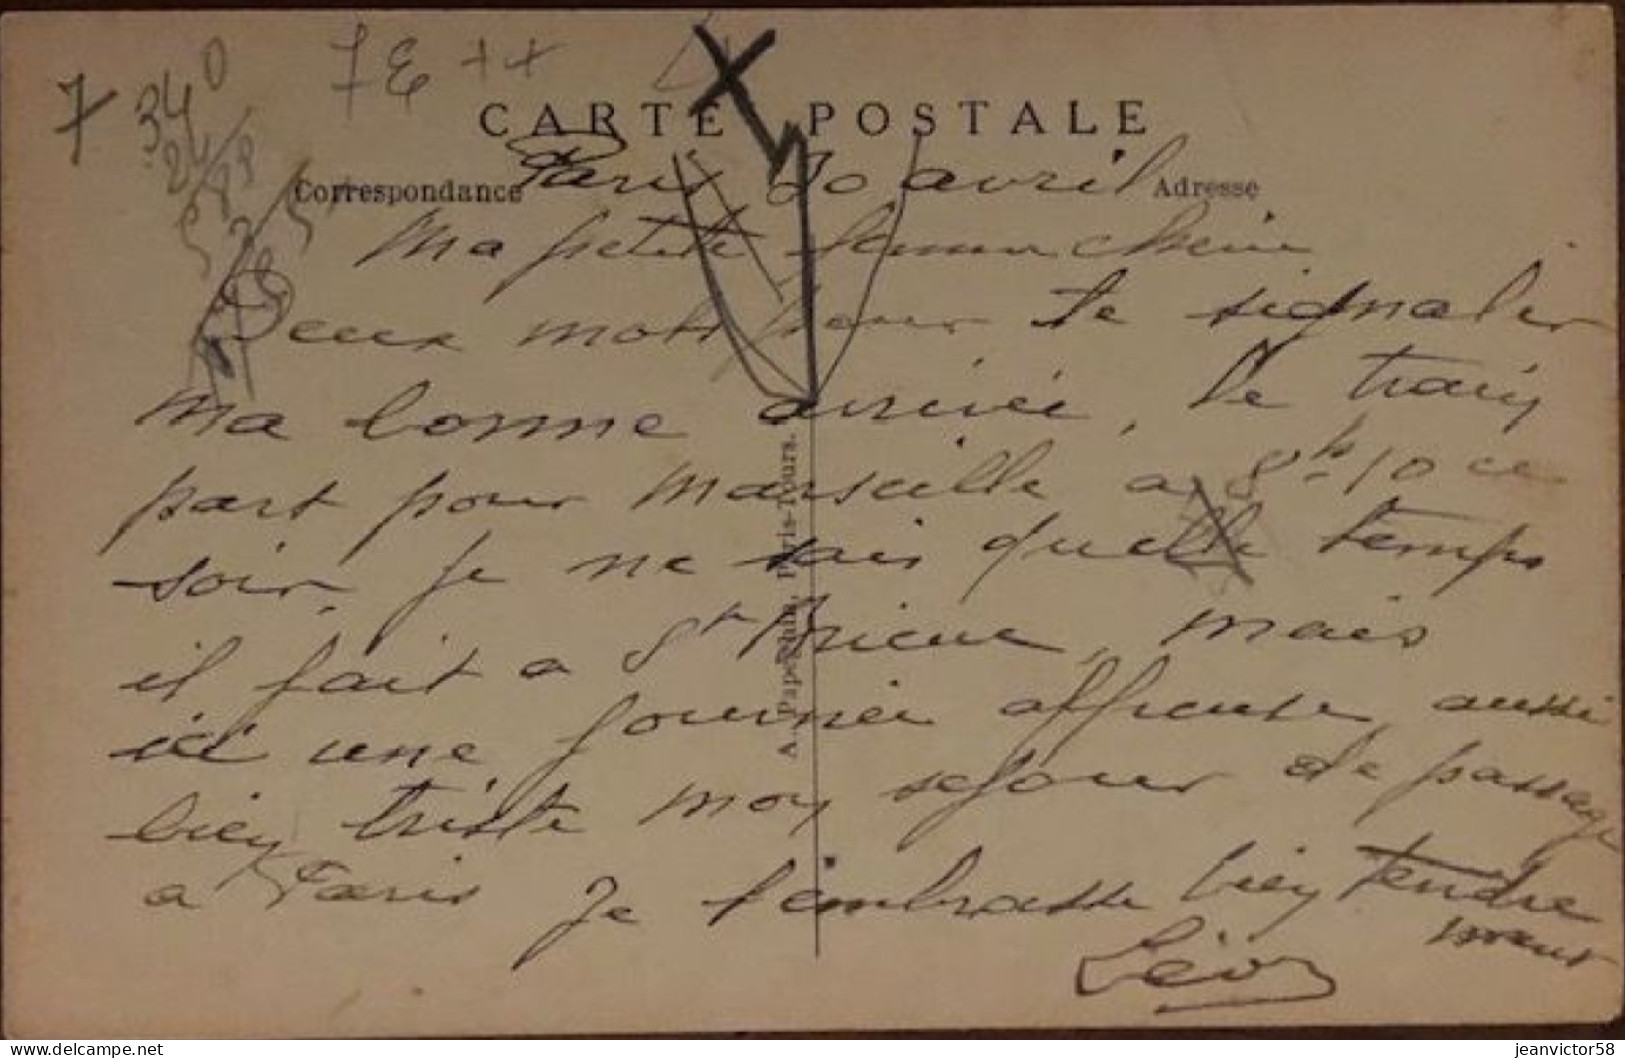 7 340 7 E ++
CARTE POSTALE
Correspondance Adresse
Paris 20 avril
Ma petite femme cherie
Deux mots pour te signaler
ma bonne arrivée, le train
part pour Marseille a 8h10 ce
soir, je ne sais quelle temps
il fait a St Brieuc, mais
ici une journée affreuse, aussi
bien triste mon sejour de passage
a Paris Je t'embrasse bien tendre
ment
Léon
A. Papeghin, Paris-Tours.
delcampe.net
jeanvictor58